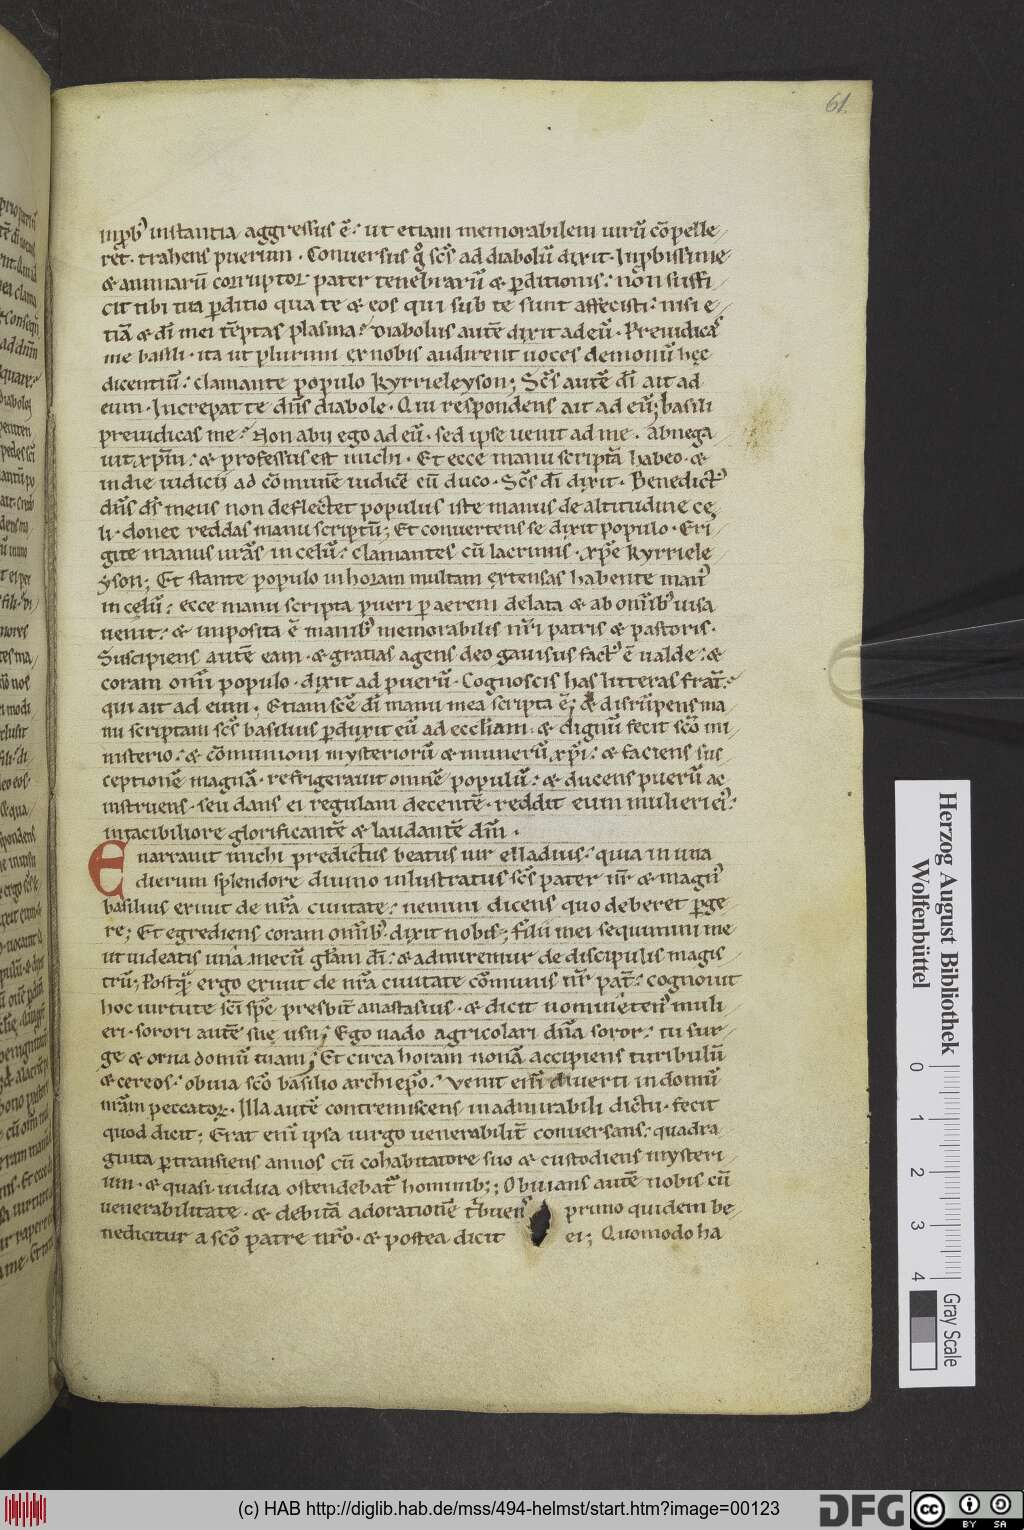 61.
inp̱bꝰ instantia aggressus ē. ut etiam memorabilem uirū cōpelle/
ret. trahens puerum. Conuersus g̊ sc̄s ad diabolū dixit. Inp̱bissime
& animarū corruptor pater tenebrarū & p̱ditionis. non suffi
cit tibi tua p̱ditio qua te & eos qui sub te sunt affecisti. nisi e/
tiā & dī mei tēptas plasma? Diabolus autē dixit ad eū. Preiudicas
me basili. ita ut plurimi ex nobis audirent uoces demonū hęc
dicentiū. clamante populo kyrrieleyson; Sc̄s autē dī ait ad
eum. Increpat te dn̄s diabole. Qui respondens ait ad eū; basili
preiudicas me. Non abii ego ad eū. sed ipse uenit ad me. abnega
uit xp̄m. & professus est michi. Et ecce manu scriptā habeo. &
in die iudicii ad cōmunē iudicē eū duco. Sc̄s dī dixit. Benedictꝰ
dn̄s ds̄ meus non deflectet populus iste manus de altitudine cę
li. donec reddas manu scriptū; Et conuertens se dixit populo. Eri/
gite manus ur̄as in celū. clamantes cū lacrimis. xp̄e kyrriele/
yson; Et stante populo in horam multam extensas habente manꝰ
in cęlū. ecce manu scripta pueri p̱ aerem delata & ab om̄ibꝰ uisa
uenit. & imposita ē manibꝰ memorabilis nr̄i patris & pastoris.
Suscipiens autē eam. & gratias agens deo gauisus factꝰ ē ualde. &
coram om̄i populo. dixit ad puerū. Cognoscis has litteras frat̄.
qui ait ad eum. Etiam sc̄e dī manu mea scripta ē; & disrūpens ma/
nu scriptam sc̄s basilius p̱duxit eū ad eccl̄iam. & dignū fecit sc̄o mi/
nisterio. & cōmunioni mysteriorū & munerū xp̄i. & faciens sus
ceptionē magnā. refrigerauit omnē populū. & ducens puerū &
instruens. seu dans ei regulam decentē. reddit eum mulieri eiꝰ
intacibiliore glorificantē & laudantē dm̄.
Enarrauit michi predictus beatus uir elladius. quia in una
dierum splendore diuino inlustratus sc̄s pater nr̄ & magnꝰ
basilius exiuit de nr̄a ciuitate. nemini dicens quo deberet p̱ge/
re; Et egrediens coram om̄ibꝰ dixit nobis; filii mei sequimini me
ut uideatis una mecū gl̄am dī. & admiremur de discipulis magis/
trū; Postquā ergo exiuit de nr̄a ciuitate cōmunis nr̄ pat̄. cognouit
hoc uirtute sc̄i sp̄c presbit̄ anastasius. & dicit nomini&enꝰ muli/
eri. sorori autē suę usu; Ego uado agricolari dn̄a soror. tu sur/
ge & orna domū tuam; Et circa horam nonā accipiens turibulū
& cereos. obuia sc̄o basilio archiep̄o. Venit eni diuerti in domū
meam peccator. Illa autē contremiscens inadmirabili dictu. fecit
quod dicit; Erat eni ipsa uirgo uenerabilit̄ conuersans. quadra
ginta p̱transiens annos cū cohabitatore suo & custodiens mysteri/
um. & quasi uidua ostendebat̄ hominib;; Obuians autē nobis cū
uenerabilitate. & debitā adorationē tbuens primo quidem be/
nedicitur a sc̄o patre nr̄o. & postea dicit ei; Quomodo ha
Herzog August Bibliothek
Wolfenbüttel
0 1 2 3 4
Gray Scale
(c) HAB http://diglib.hab.de/mss/494-helmst/start.htm?image=00123
DFG
cc BY SA